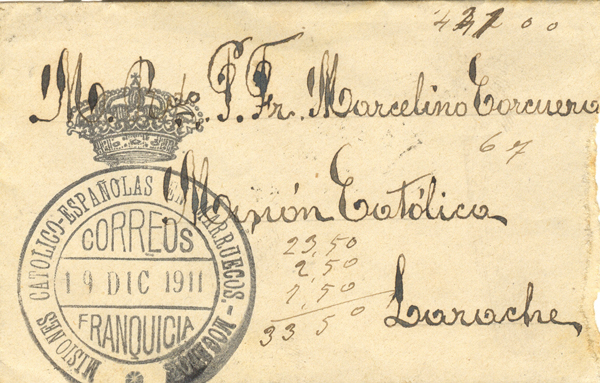 M. R. P. Fr. Marcelino Corcuera
Misión Católica
Larache
MISIONES CATOLICO-ESPAÑOLAS EN MARRUECOS.-
CORREOS
19 DIC 1911
FRANQUICIA
67
23,50
2,50
7,50
33 50